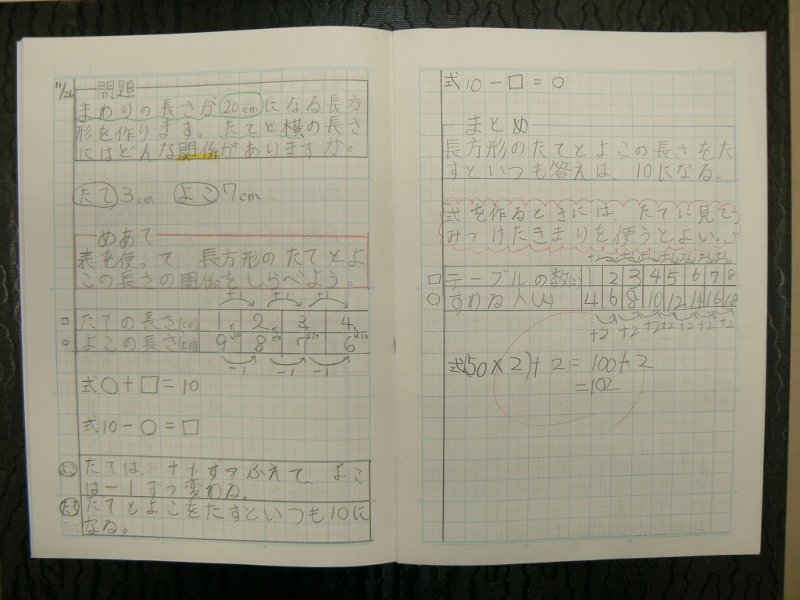 11/26
問題
まわりの長さが20cmになる長方
形を作ります。たてと横の長さ
にはどんな関係がありますか。
たて3cm よこ7cm
めあて
表を使って、長方形のたてとよ
この長さの関係をしらべよう。
+1 +1 +1
□ たての長さ(cm) 1 2 3 4
○ よこの長さ(cm) 9 8 7 6
-1 -1 -1
式○+□=10
式10-○=□
よこ たては、+1ずつふえて、よこ
は-1ずつ変わる。
たて たてとよこをたすといつも10に
なる。
式10-□=○
まとめ
長方形のたてとよこの長さをた
すといつも答えは、10になる。
式を作るときには、たてに見て
みつけたきまりを使うとよい。
□ テーブルの数(こ) 1 2 3 4 5 6 7 8
○ すわる人(人) 4 6 8 10 12 14 16 18
+2 +2 +2 +2 +2 +2 +2
式(50×2)+2=100+2
=102